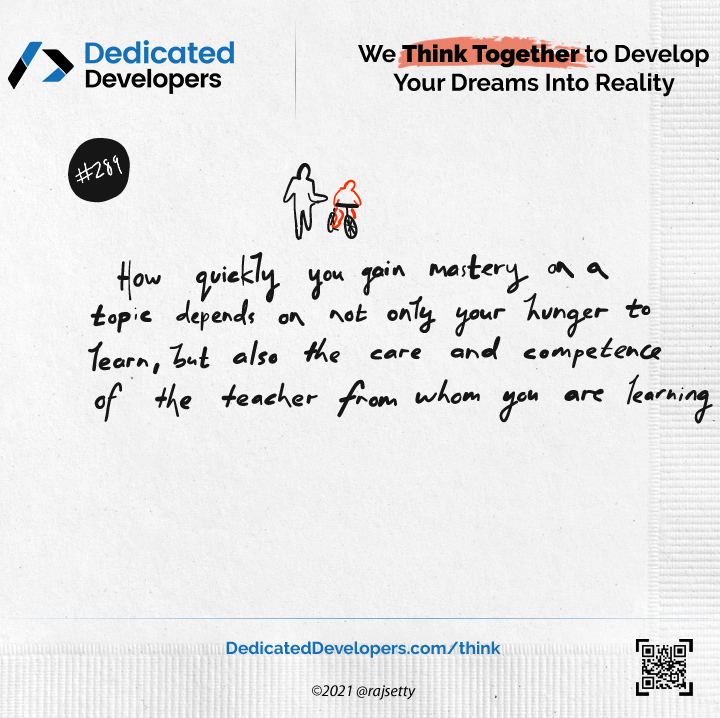 Dedicated
Developers
We Think Together to Develop
Your Dreams Into Reality
#289
How quickly you gain mastery on a
topic depends on not only your hunger to
learn, but also the care and competence
of the teacher from whom you are learning
DedicatedDevelopers.com/think
©2021 @rajsetty